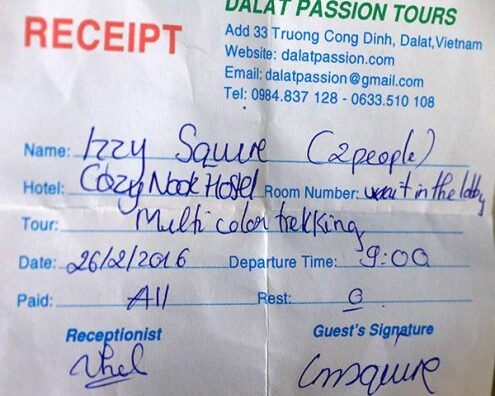 RECEIPT
DALAT PASSION TOURS
Add 33 Truong Cong Dinh, Dalat,Vietnam
Website: dalatpassion.com
Email: dalatpassion@gmail.com
Tel: 0984.837 128 - 0633.510 108
Name: Izzy Squire (2 people)
Hotel: Cozy Nook Hostel Room Number: wait in the lobby
Tour: Multi color trekking
Date: 26/2/2016 Departure Time: 9:00
Paid: All Rest: 0
Receptionist Guest's Signature
cmsquire